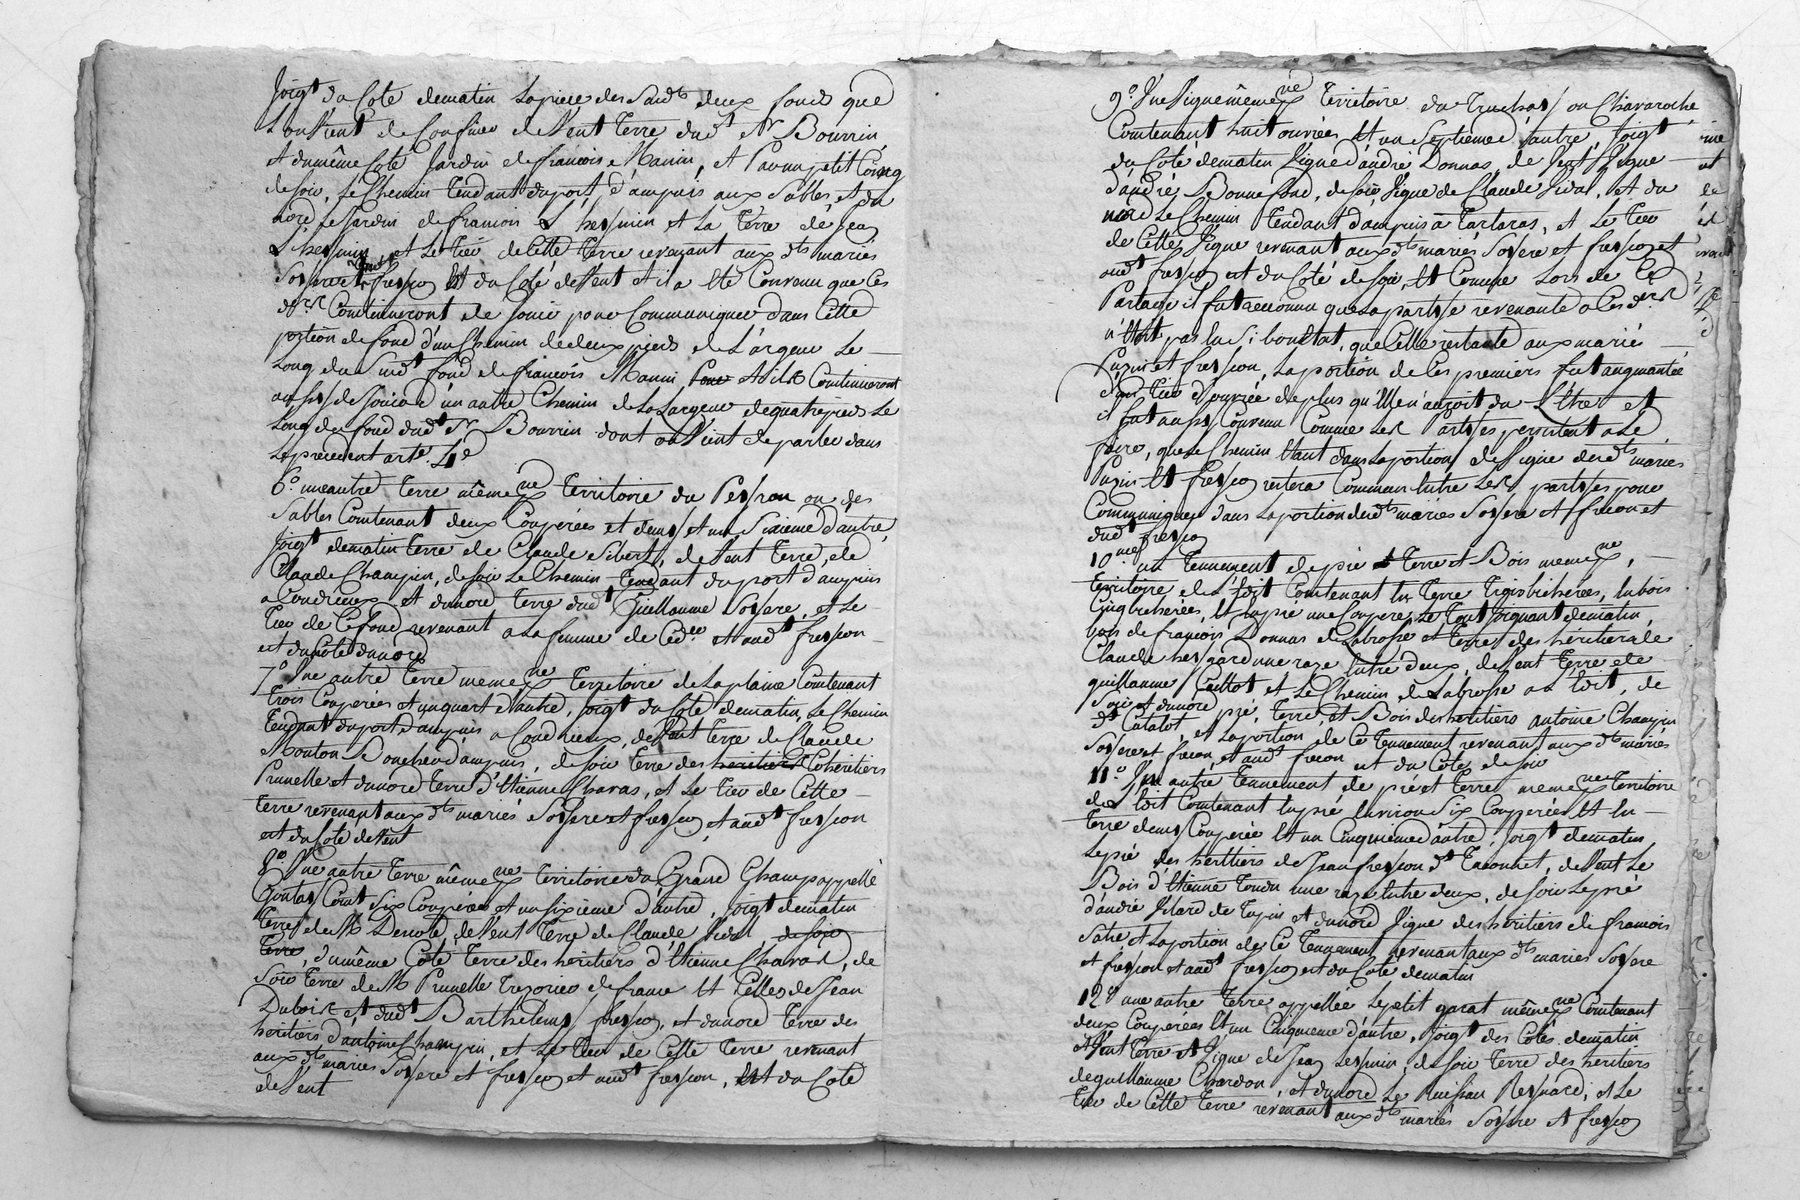 Joigt du Coté dematin la piece des Susds deux fonds que
L'on Vient de Confiner de Vent Terre dudt Sr Bourrin
et du même Coté Jardin de francois Manin, et Par un petit Coing
de soir, le Chemin tendant du port d'ampuis aux Sables, et du
nord le Jardin de francois L'hermin et La Terre de Jean
L'hermin et Le tier de Cette Terre revenant aux dts mariés
et du Coté de Vent et il a été Convenu que Ces
derrs Continueront de Jouir pour Communiquer dans Cette
portion de fond d'un Chemin de deux pieds de Largeur Le
Long du Susdt fond de francois Manin, et ils Continueront
aussy de Jouir d'un autre Chemin de La Largeur de quatre pieds Le
Long du fond dudt Sr Bourrin dont on Vient de parler dans
Le precedent arte.
6° une autre Terre même Territoire du Peyron ou des
Sables Contenant deux Couperées et demy et un Sixieme d'autre,
Joigt dematin Terre de Claude Gibert, de Vent Terre de
Claude Champin, de soir Le Chemin Tendant du port d'ampuis
a Condrieux et du nord Terre dudt Guillaume Soyere, et Le
Tier de Ce fond revenant a La femme de Cedr et audt freyson
est du Coté du nord
7° Une autre Terre meme Territoire de La plaine Contenant
Trois Couperées et un quart d'autre, Joigt du Coté dematin, Le Chemin
Tendant du port d'ampuis a Condrieux, de Vent Terre de Claude
Mouton Boucher d'ampuis, de soir Terre des heritiers Coheritiers
Prunelle et du nord Terre d'Etienne Chavas, et Le tier de Cette
Terre revenant aux dts mariés Soyere et freyson et audt freyson
est du Coté de Vent
8° Une autre Terre même Territoire du Grand Champ appellé
Cont Six Couperées et un sixieme d'autre, Joigt dematin
Terre de Mr de Vent Terre de Claude Vidal de soir
Terre, du même Coté Terre des heritiers d'Etienne Chavas, de
Soir Terre de Mr Prunelle Tresorier de france et Celle de Jean
Dubois et dudt Barthelemy freyson, et du nord Terre des
heritiers d'antoine Champin, et Le Tier de Cette Terre revenant
aux dts mariés Soyere et freyson et audt freyson, est du Coté
de Vent
9° Une Vigne même Territoire du Truchas ou Chavaroche
Contenant huit ouvrées et un Septieme d'autre, Joigt
du Coté dematin Vigne d'andré Donnas, de Vent Vigne
d'andré Bonnefond, de soir Vigne de Claude Vidal, et du
nord Le Chemin Tendant d'ampuis à Tartaras, et Le tier
de Cette Vigne revenant aux dts mariés Soyere et freyson et
audt freyson est du Coté de soir, et Comme Lors de Ce
Partage il fut reconnu que La partie revenante a Ces derrs
n'etoit pas en Si bon Etat, que Celle restante aux mariés
Puzin et freyson, La portion de Ces premiers fut augmantée
d'un tier d'ouvrée de plus qu'elle n'auroit du Etre et
il fut aussy Convenu Comme Les Parties persistent a Le
faire, que Le Chemin Etant dans La portion de Vigne desds mariés
Puzin et freyson restera Commun Entre Les parties pour
Communiquer dans La portion desds mariés Soyere et freyson et
dudt freyson
10me un Tennement de pré Terre et Bois meme
Territoire de Contenant En Terre Trois bicherées, En bois
Cinq bicherées, et En pré une Couperée Le Tout Joignant dematin
bois de francois Donnas de Labrosse et Terre des heritiers de
Claude une raze Entre deux, de Vent Terre de
guillaume et Le Chemin de Labrosse a de
Soir et du nord
dt Catalot, pré, Terre, et Bois des heritiers antoine Champin
et La portion de Ce Tennement revenant aux dts mariés
Soyere et freson, et audt freson est du Coté de Soir
11° Un autre Tennement de pré et Terre meme Territoire
de Contenant En pré Environ Six Couperées et En
Terre demy Couperée et un Cinquieme d'autre, Joigt dematin
Le pré des herittiers de Jean freyson dt de Vent Le
Bois d'Etienne une raze Entre deux, de soir Le pré
d'andré Vilard de Tupin et du nord Vigne des heritiers de francois
et La portion de Ce Tennement revenant aux dts mariés Soyere
et freyson et audt freyson est du Coté dematin
12° une autre Terre appellée Le petit garat même Contenant
deux Couperées et un Cinquieme d'autre, Joigt des Cotés dematin
et Vent Terre et Vigne de Jean Lermin, de soir Terre des heritiers
de guillaume Chardon, et du nord Le Ruissau et Le
Tier de Cette Terre revenant aux dts mariés Soyere et freyson